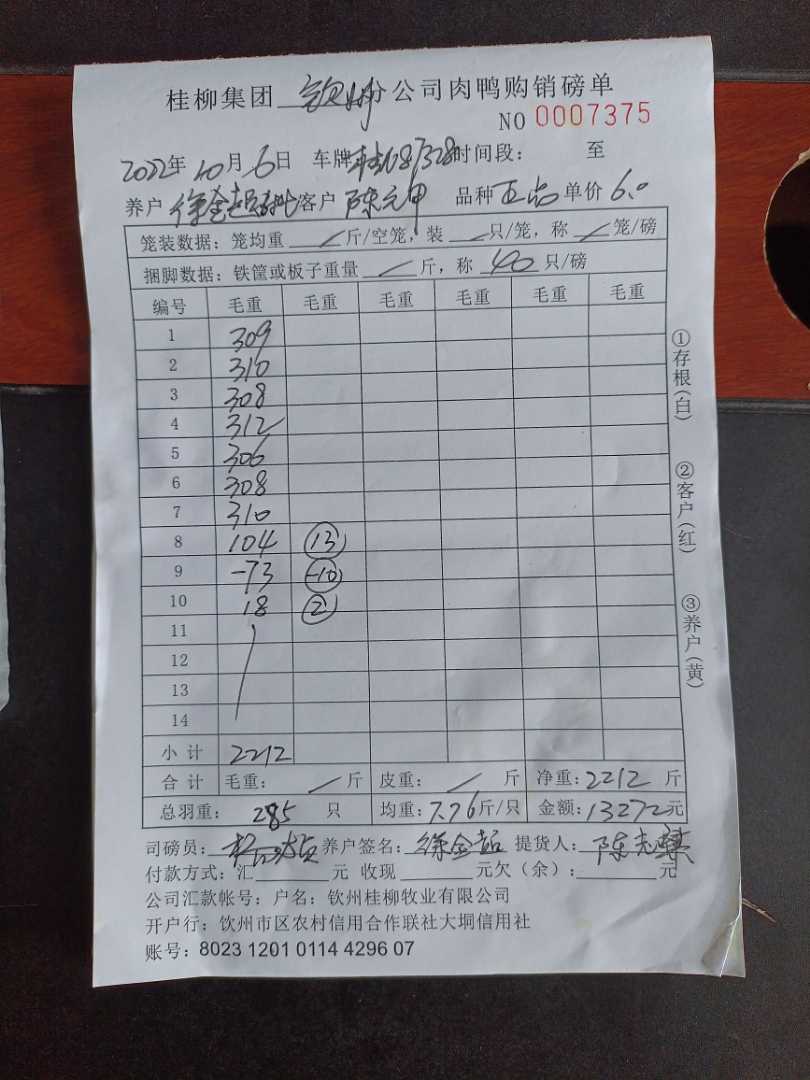 桂柳集团 钦州 分公司肉鸭购销磅单
NO 0007375
2022年 10月 6日 车牌 时间段： 至
养户 徐金超 客户 陈元甲 品种 正品 单价 6.0
笼装数据：笼均重 / 斤/空笼，装 / 只/笼，称 / 笼/磅
捆脚数据：铁筐或板子重量 / 斤，称 40 只/磅
编号 毛重 毛重 毛重 毛重 毛重 毛重
1 309
2 310
3 308
4 312
5 306
6 308
7 310
8 104 13
9 -73 -10
10 18 2
11
12
13
14
小计 2212
合计 毛重： / 斤 皮重： / 斤 净重：2212 斤
总羽重： 285 只 均重：7.76斤/只 金额：13272元
司磅员： 养户签名：徐金超 提货人：陈
付款方式：汇 元 收现 元欠（余）： 元
公司汇款帐号：户名：钦州桂柳牧业有限公司
开户行：钦州市区农村信用合作联社大垌信用社
账号：8023 1201 0114 4296 07
①存根（白）
②客户（红）
③养户（黄）